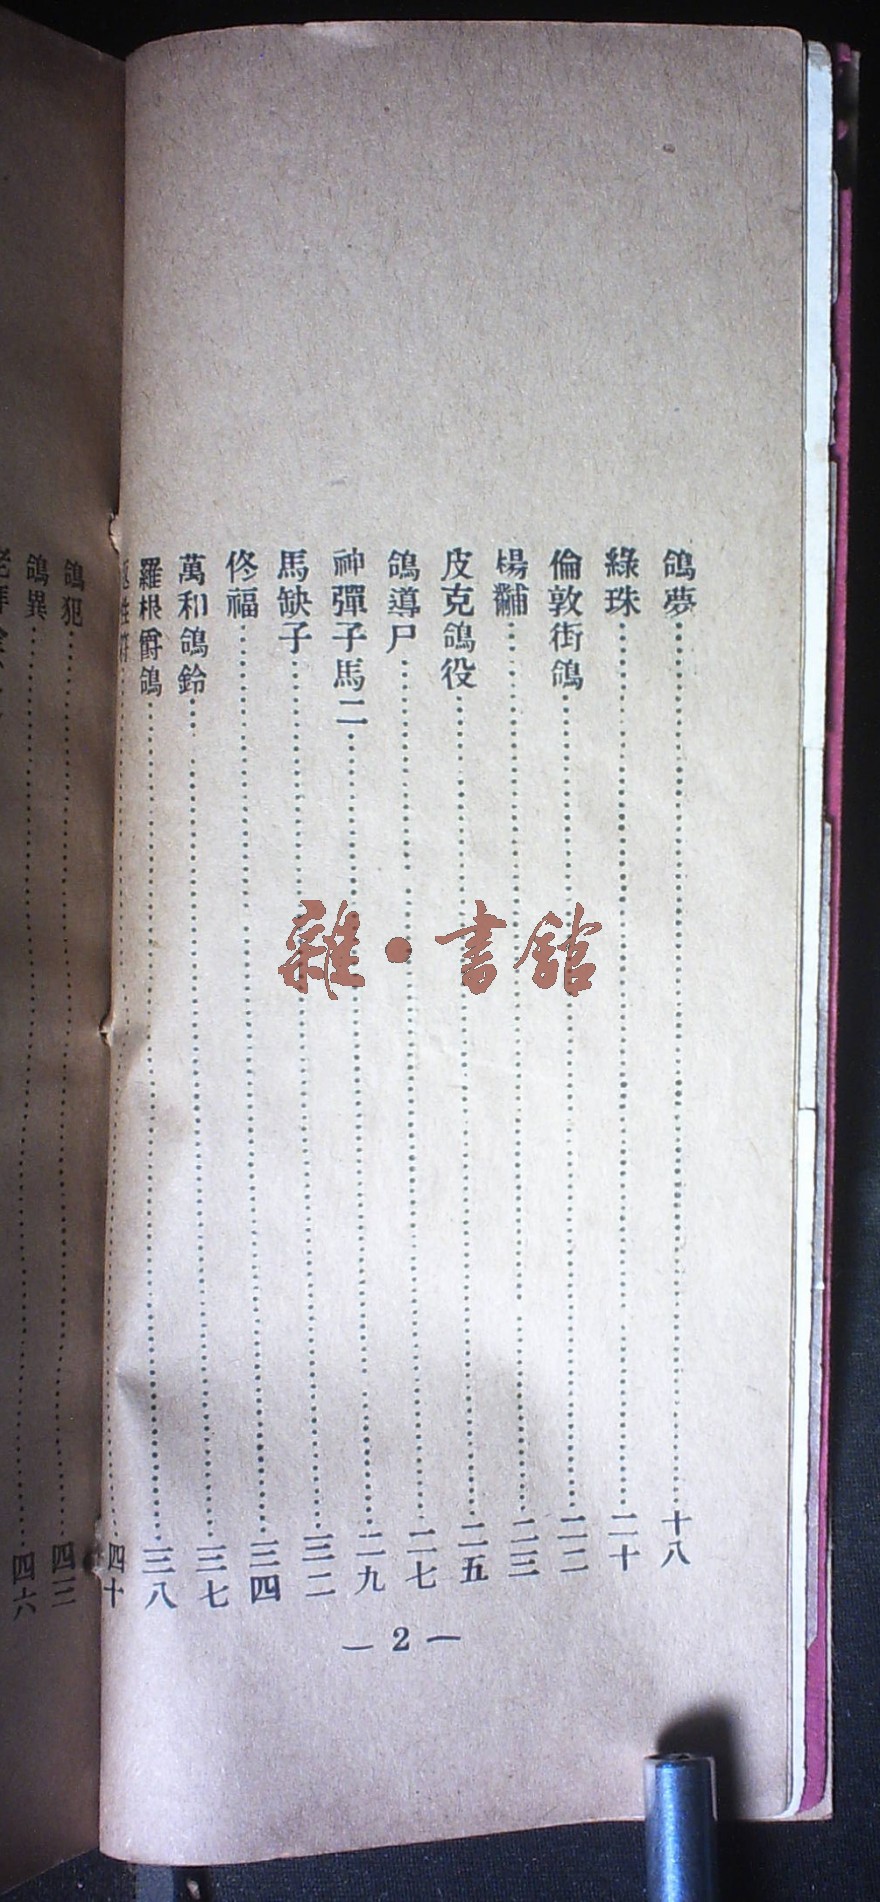 鴿夢……十八
綠珠……二十
倫敦街鴿……二二
楊黼……二三
皮克鴿役……二五
鴿導尸……二七
神彈子馬二……二九
馬缺子……三二
佟福……三四
萬和鴿鈴……三七
羅根爵鴿……三八
四十
鴿犯……四三
鴿異……四六
— 2 —
雜·書館